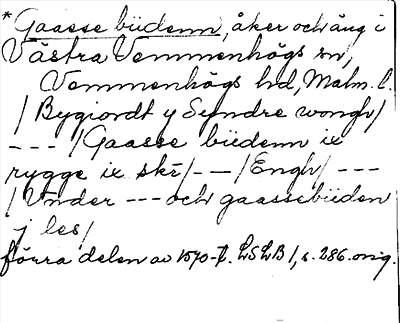 * Gaasse büdenn, åker och äng i
Västra Vemmenhögs sn,
Vemmenhögs hd, Malm. l.
/ Bygiordt y Syndre wongh/
- - - / Gaasse büdenn ix
rygge ix skr/ - - /Engh/ - - -
/ Vnder - - - och gaassebüden
j les/
förra delen av 1570-t. LSLB 1, s. 286. orig.